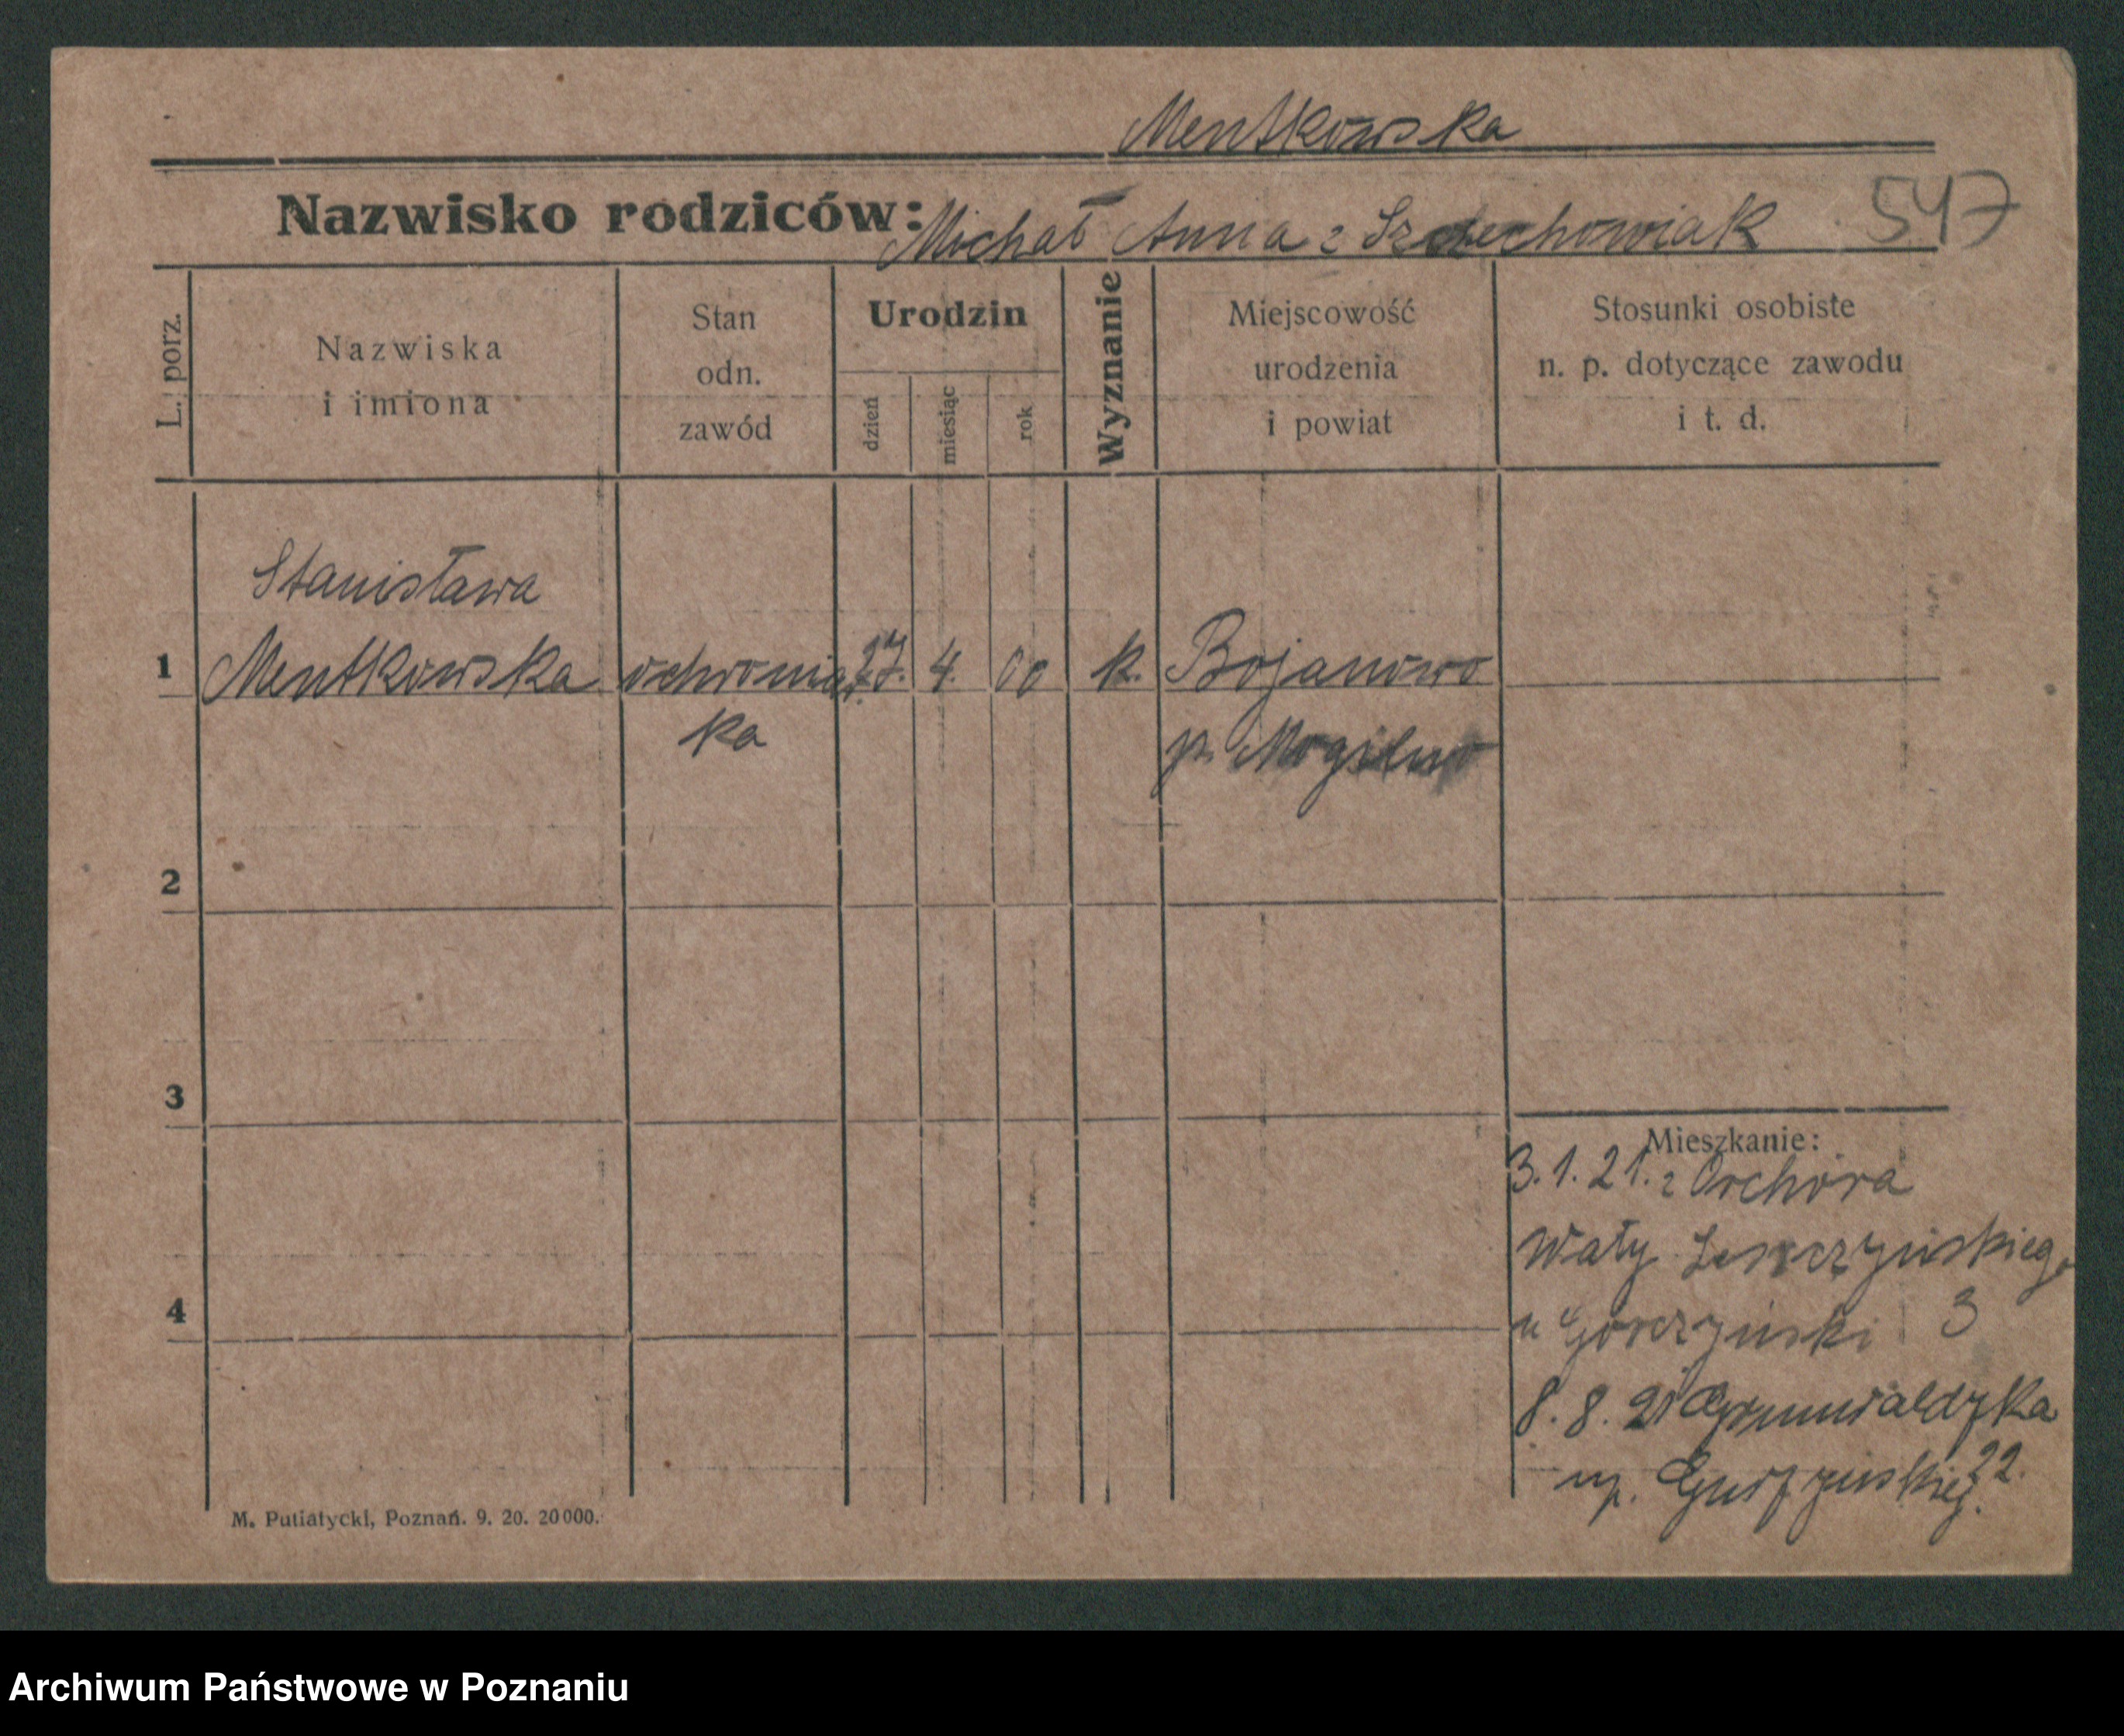 Mentkowska
Nazwisko rodziców: Michał Anna z 547
L. porz.
Nazwiska
i imiona
Stan
odn.
zawód
Urodzin
dzień
miesiąc
rok
Wyznanie
Miejscowość
urodzenia
i powiat
Stosunki osobiste
n. p. dotyczące zawodu
i t. d.
Stanisława
1 Mentkowska ochroniar 27. 4. 00 k. Bojanowo
ka p. Mogilno
2
3
Mieszkanie:
3.1.21. z Orchowa
Wały Leszczyńskiego
u Gorczyński 3
4
8.8.21 Grunwaldzka
np. 22.
M. Putiatycki, Poznań. 9. 20. 20000.
Archiwum Państwowe w Poznaniu